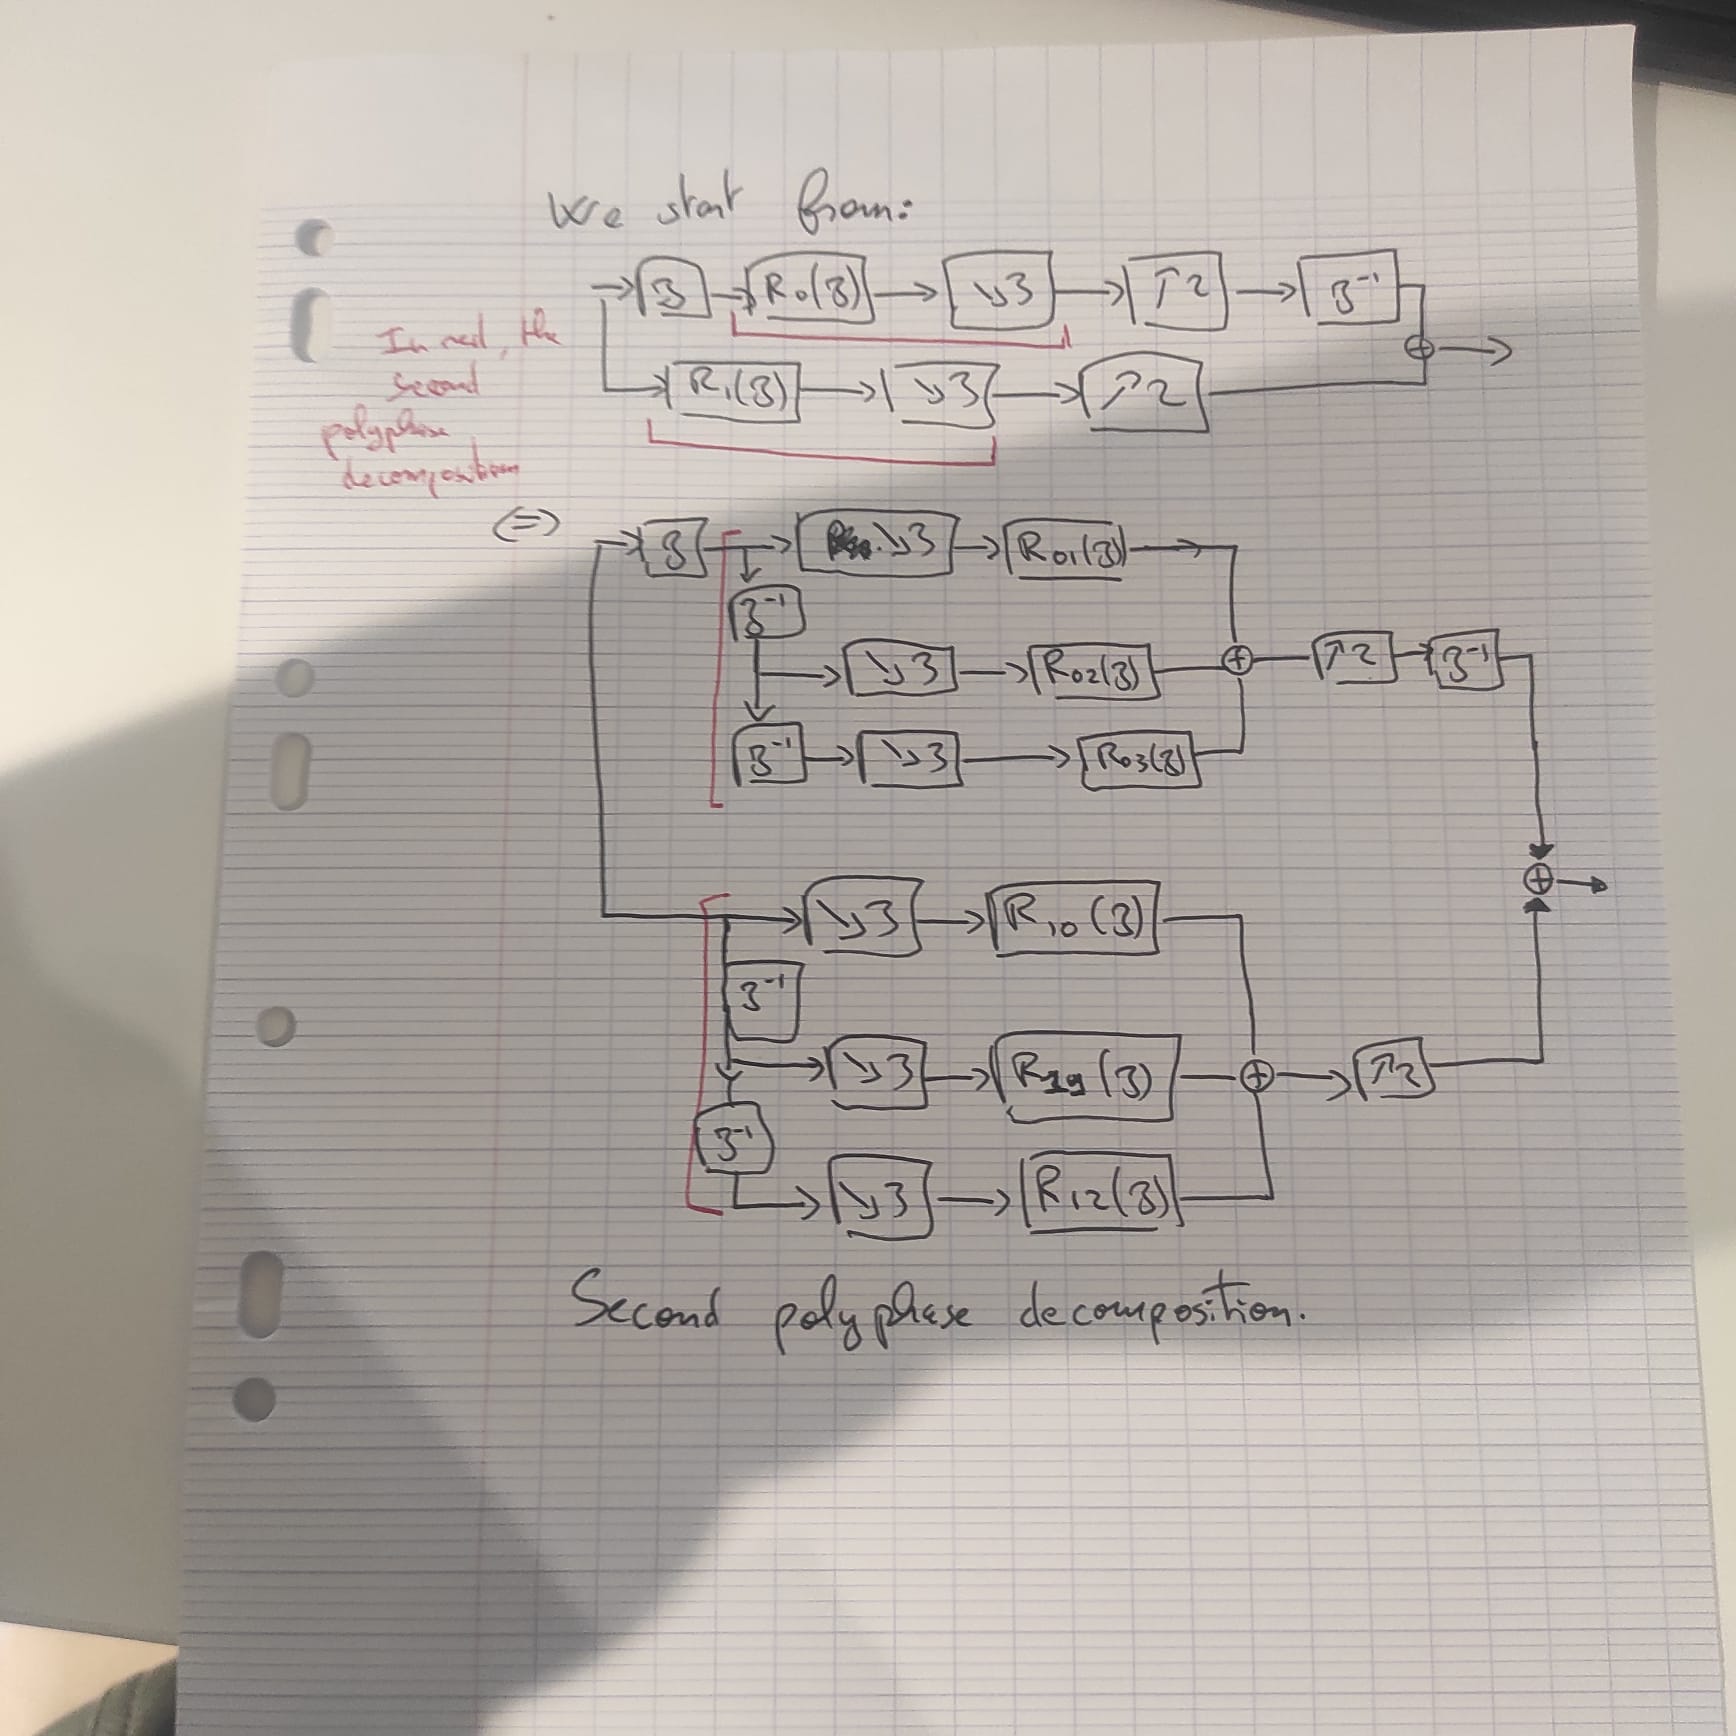 We start from:
→ z → R₀(z) → ↓3 → ↑2 → z⁻¹
⊕ →
R₁(z) → ↓3 → ↑2
In red, the
second
polyphase
decomposition
(=)
→ z → ↓3 → R₀₁(z) →
z⁻¹
↓3 → R₀₂(z) ⊕ ↑2 → z⁻¹
z⁻¹ → ↓3 → R₀₃(z)
⊕ →
→ ↓3 → R₁₀(z)
z⁻¹
→ ↓3 → R₁₁(z) ⊕ → ↑2
z⁻¹
→ ↓3 → R₁₂(z)
Second polyphase decomposition.